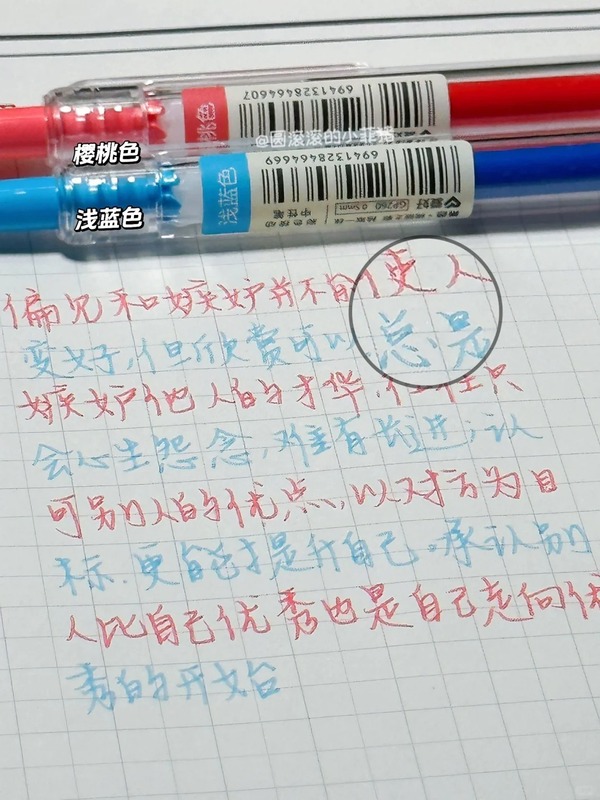 桃色
6941328464607
@圆滚滚的小
樱桃色
浅蓝色
6941328464669
GP280 0.5mm
中性笔
浅蓝色
偏见和嫉妒并不能使人
变好,但欣赏可以.总是
嫉妒他人的才华.往往只
会心生怨念,难有长进;认
可别人的优点,以对方为目
标.更能才是升自己。承认别
人比自己优秀也是自己走向优
秀的开始